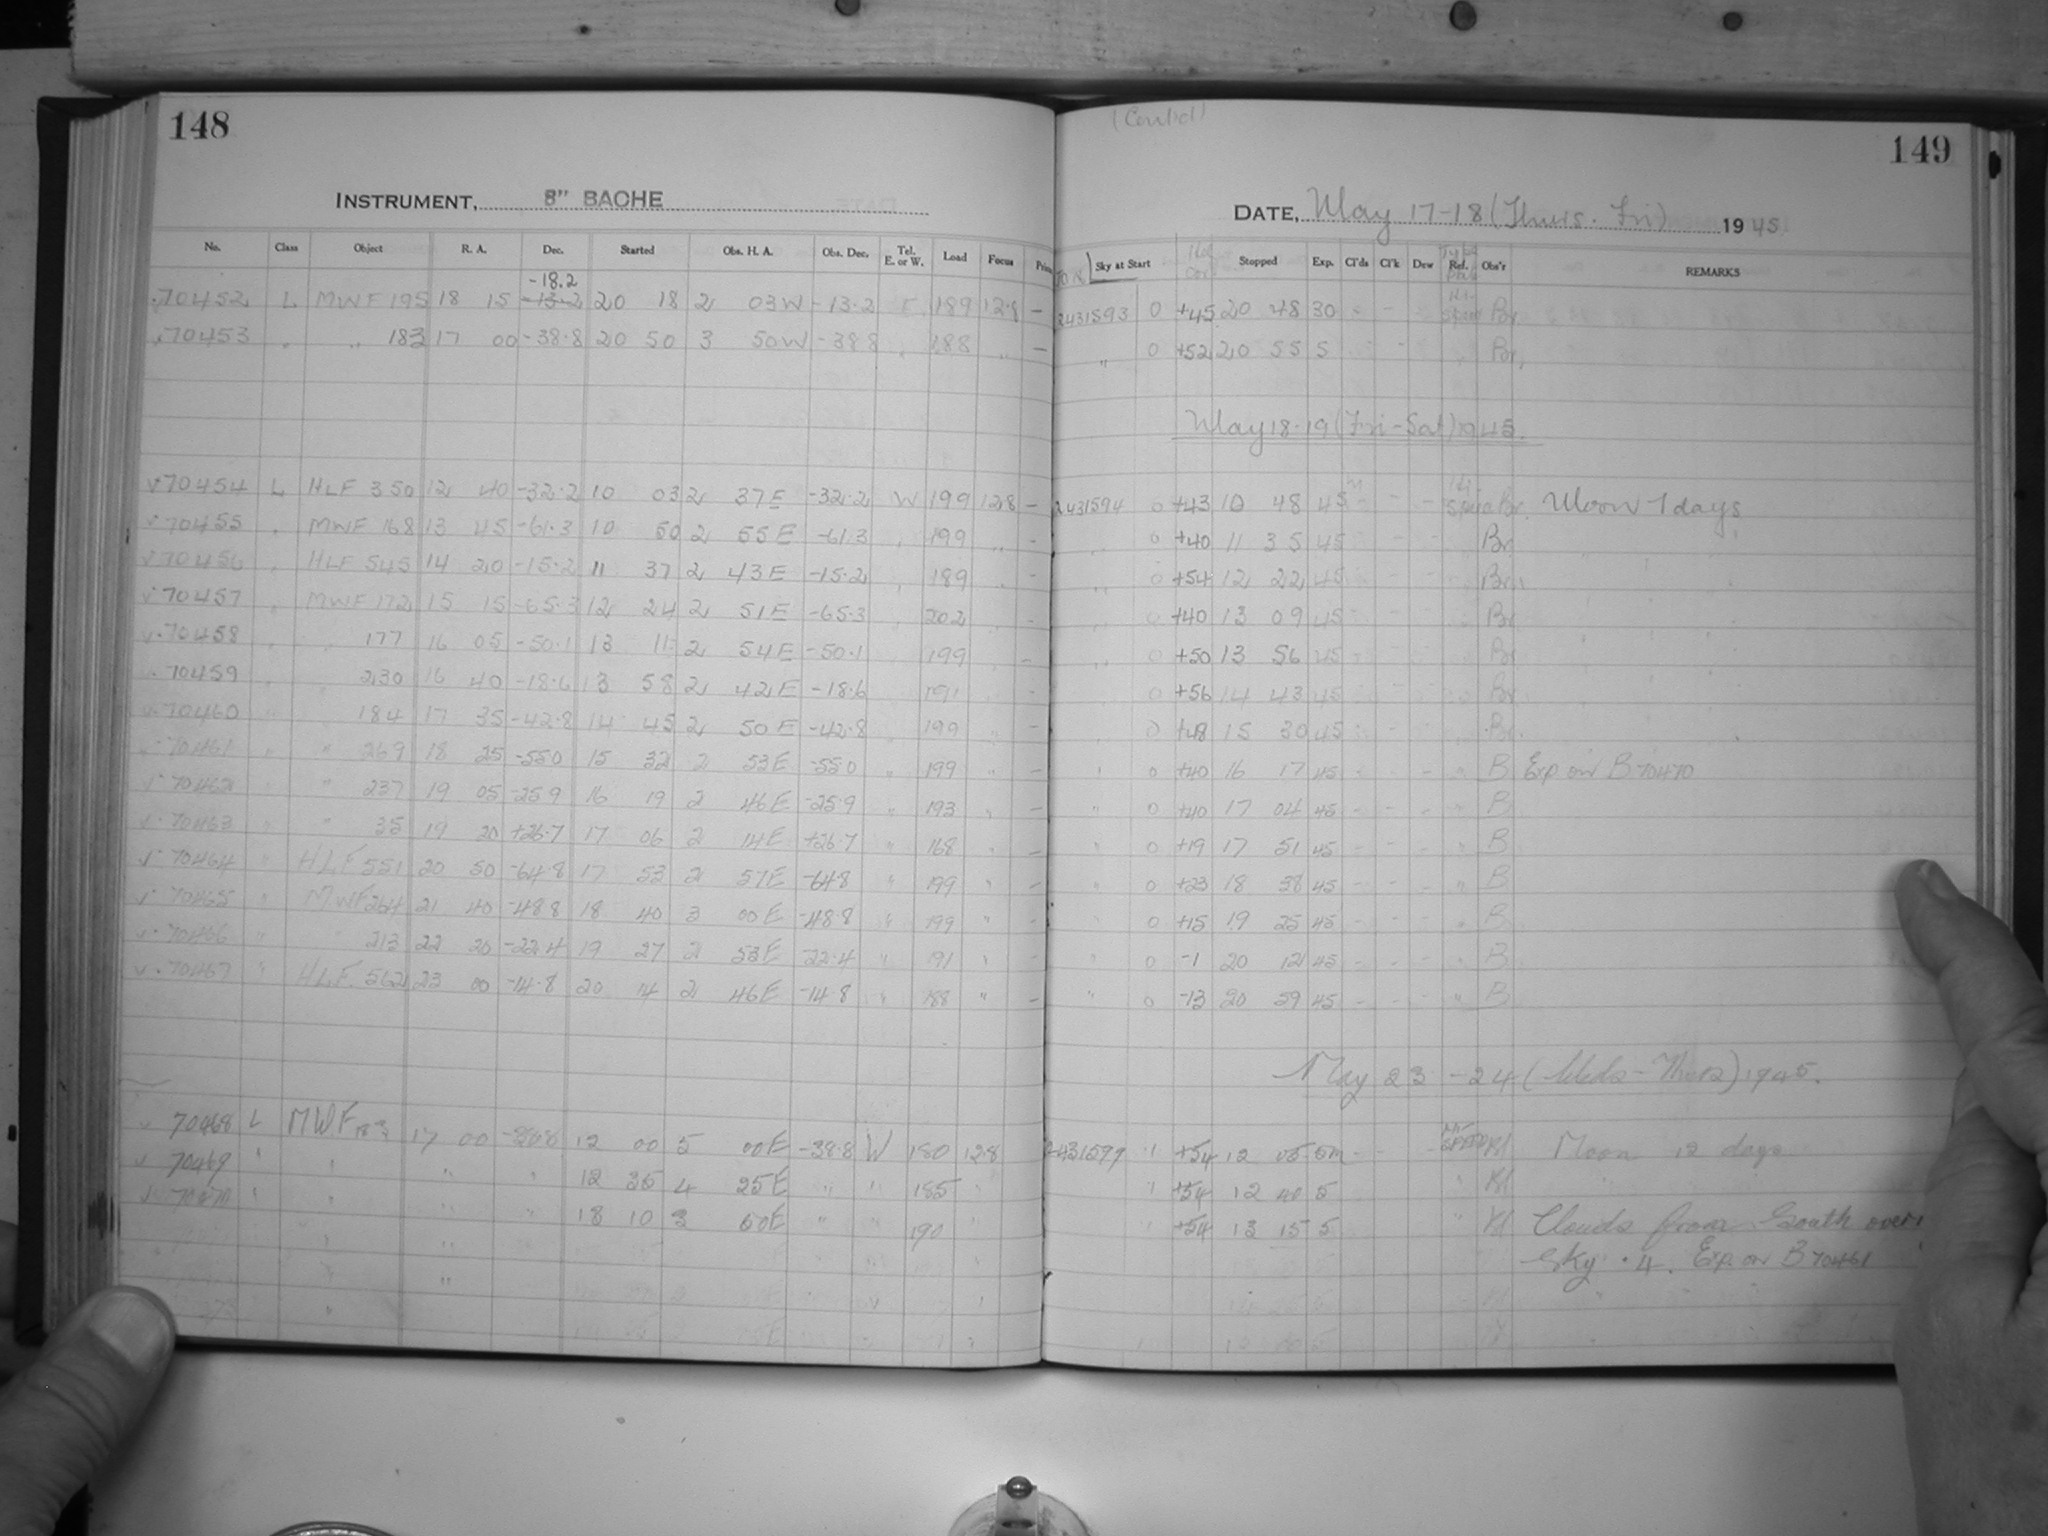 148
INSTRUMENT, 8" BACHE
No. Class Object R. A. Dec. Started Obs. H. A. Obs. Dec. Tel. E. or W. Load Focus
-18.2
70452 L MWF 195 18 15 -13.2 20 18 2 03W -13.2 E 189 12.8 -
70453 " " 183 17 00 -38.8 20 50 3 50W -38.8 " 188 " -
70454 L HLF 350 12 40 -32.2 10 03 2 37E -32.2 W 199 12.8 -
70455 " MWF 168 13 45 -61.3 10 50 2 55E -61.3 " 199 " -
70456 " HLF 545 14 20 -15.2 11 37 2 43E -15.2 " 189 " -
70457 " MWF 172 15 15 -65.3 12 24 2 51E -65.3 " 202 " -
70458 " " 177 16 05 -50.1 13 11 2 54E -50.1 " 199 " -
70459 " " 230 16 40 -18.6 13 58 2 42E -18.6 " 191 " -
70460 " " 184 17 35 -42.8 14 45 2 50E -42.8 " 199 " -
70461 " " 269 18 25 -55.0 15 32 2 53E -55.0 " 199 " -
70462 " " 237 19 05 -25.9 16 19 2 46E -25.9 " 193 " -
70463 " " 35 19 20 +26.7 17 06 2 14E +26.7 " 168 " -
70464 " HLF 551 20 50 -64.8 17 53 2 57E -64.8 " 199 " -
70465 " MWF 264 21 40 -48.8 18 40 3 00E -48.8 " 199 " -
70466 " " 213 22 20 -22.4 19 27 2 53E -22.4 " 191 " -
70467 " HLF 562 23 00 -14.8 20 14 2 46E -14.8 " 188 " -
70468 L MWF 183 17 00 -38.8 12 00 5 00E -38.8 W 180 12.8
70469 " " " " 12 35 4 25E " " 185 "
70470 " " " " 13 10 3 50E " " 190 "
(Contd)
149
DATE, May 17-18 (Thurs. Fri) 1945
Sky at Start Stopped Exp. Cl'ds Cl'k Dew Ref. Obs'r REMARKS
2431593 0 +45 20 48 30 - - Br.
" 0 +52 20 55 5 - - " Br.
May 18-19 (Fri-Sat) 1945.
2431594 0 +43 10 48 45 - - - Br. Moon 7 days
" 0 +40 11 35 45 - - - Br
" 0 +54 12 22 45 - - - Br.
" 0 +40 13 09 45 - - - Br
" 0 +50 13 56 45 - - - Br
" 0 +56 14 43 45 - - - Br
" 0 +48 15 30 45 - - - Br.
" 0 +40 16 17 45 - - - " B Exp. on B 70470
" 0 +40 17 04 45 - - - " B
" 0 +19 17 51 45 - - - " B
" 0 +23 18 38 45 - - - " B
" 0 +15 19 25 45 - - - " B
" 0 -1 20 12 45 - - - " B
" 0 -13 20 59 45 - - - " B
May 23-24 (Weds-Thurs) 1945.
2431599 1 +54 12 05 5m - - - Moon 12 days
" +54 12 40 5
" +54 13 15 5 Clouds from South over
Sky .4. Exp. on B 70461